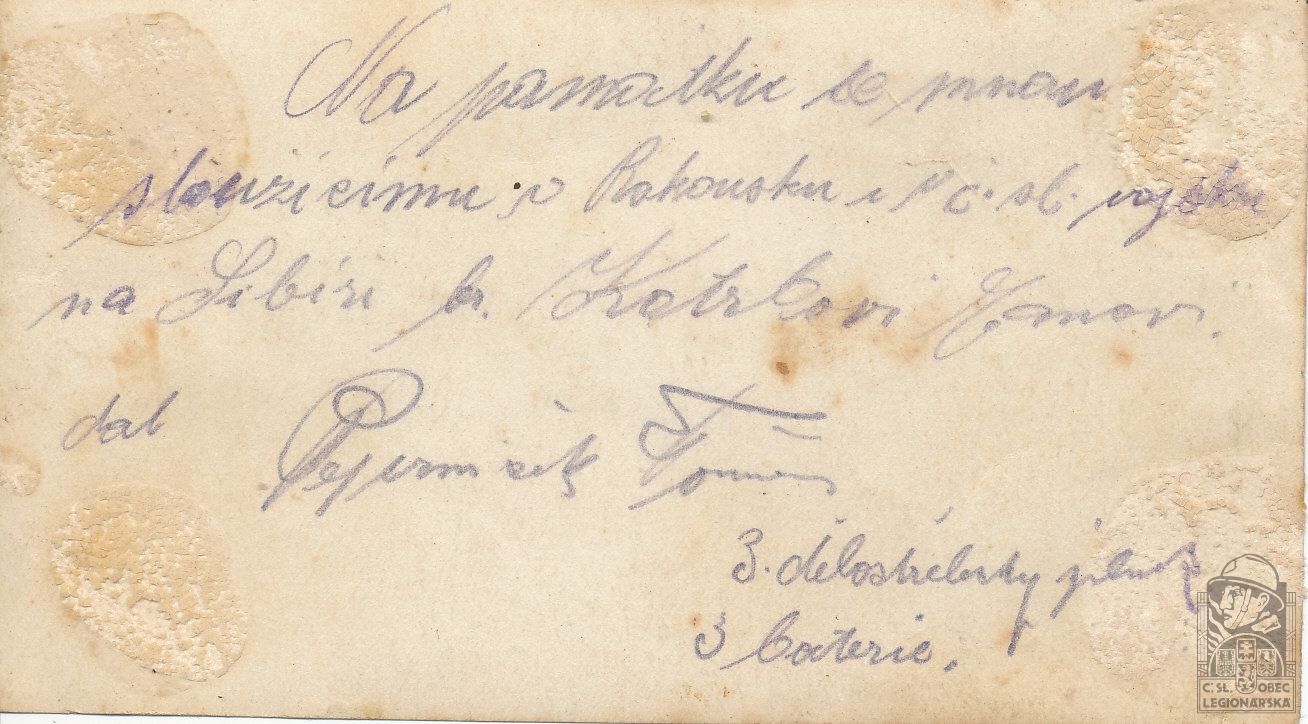 Na pamatku se mnou
sloužícímu v Rakousku i v č. sl. vojsku
na Sibiři br. Kotrlovi Janovi.
dal Tomáš
3. dělostřelecký pluk
3 baterie.
C.SL. OBEC
LEGIONÁŘSKÁ